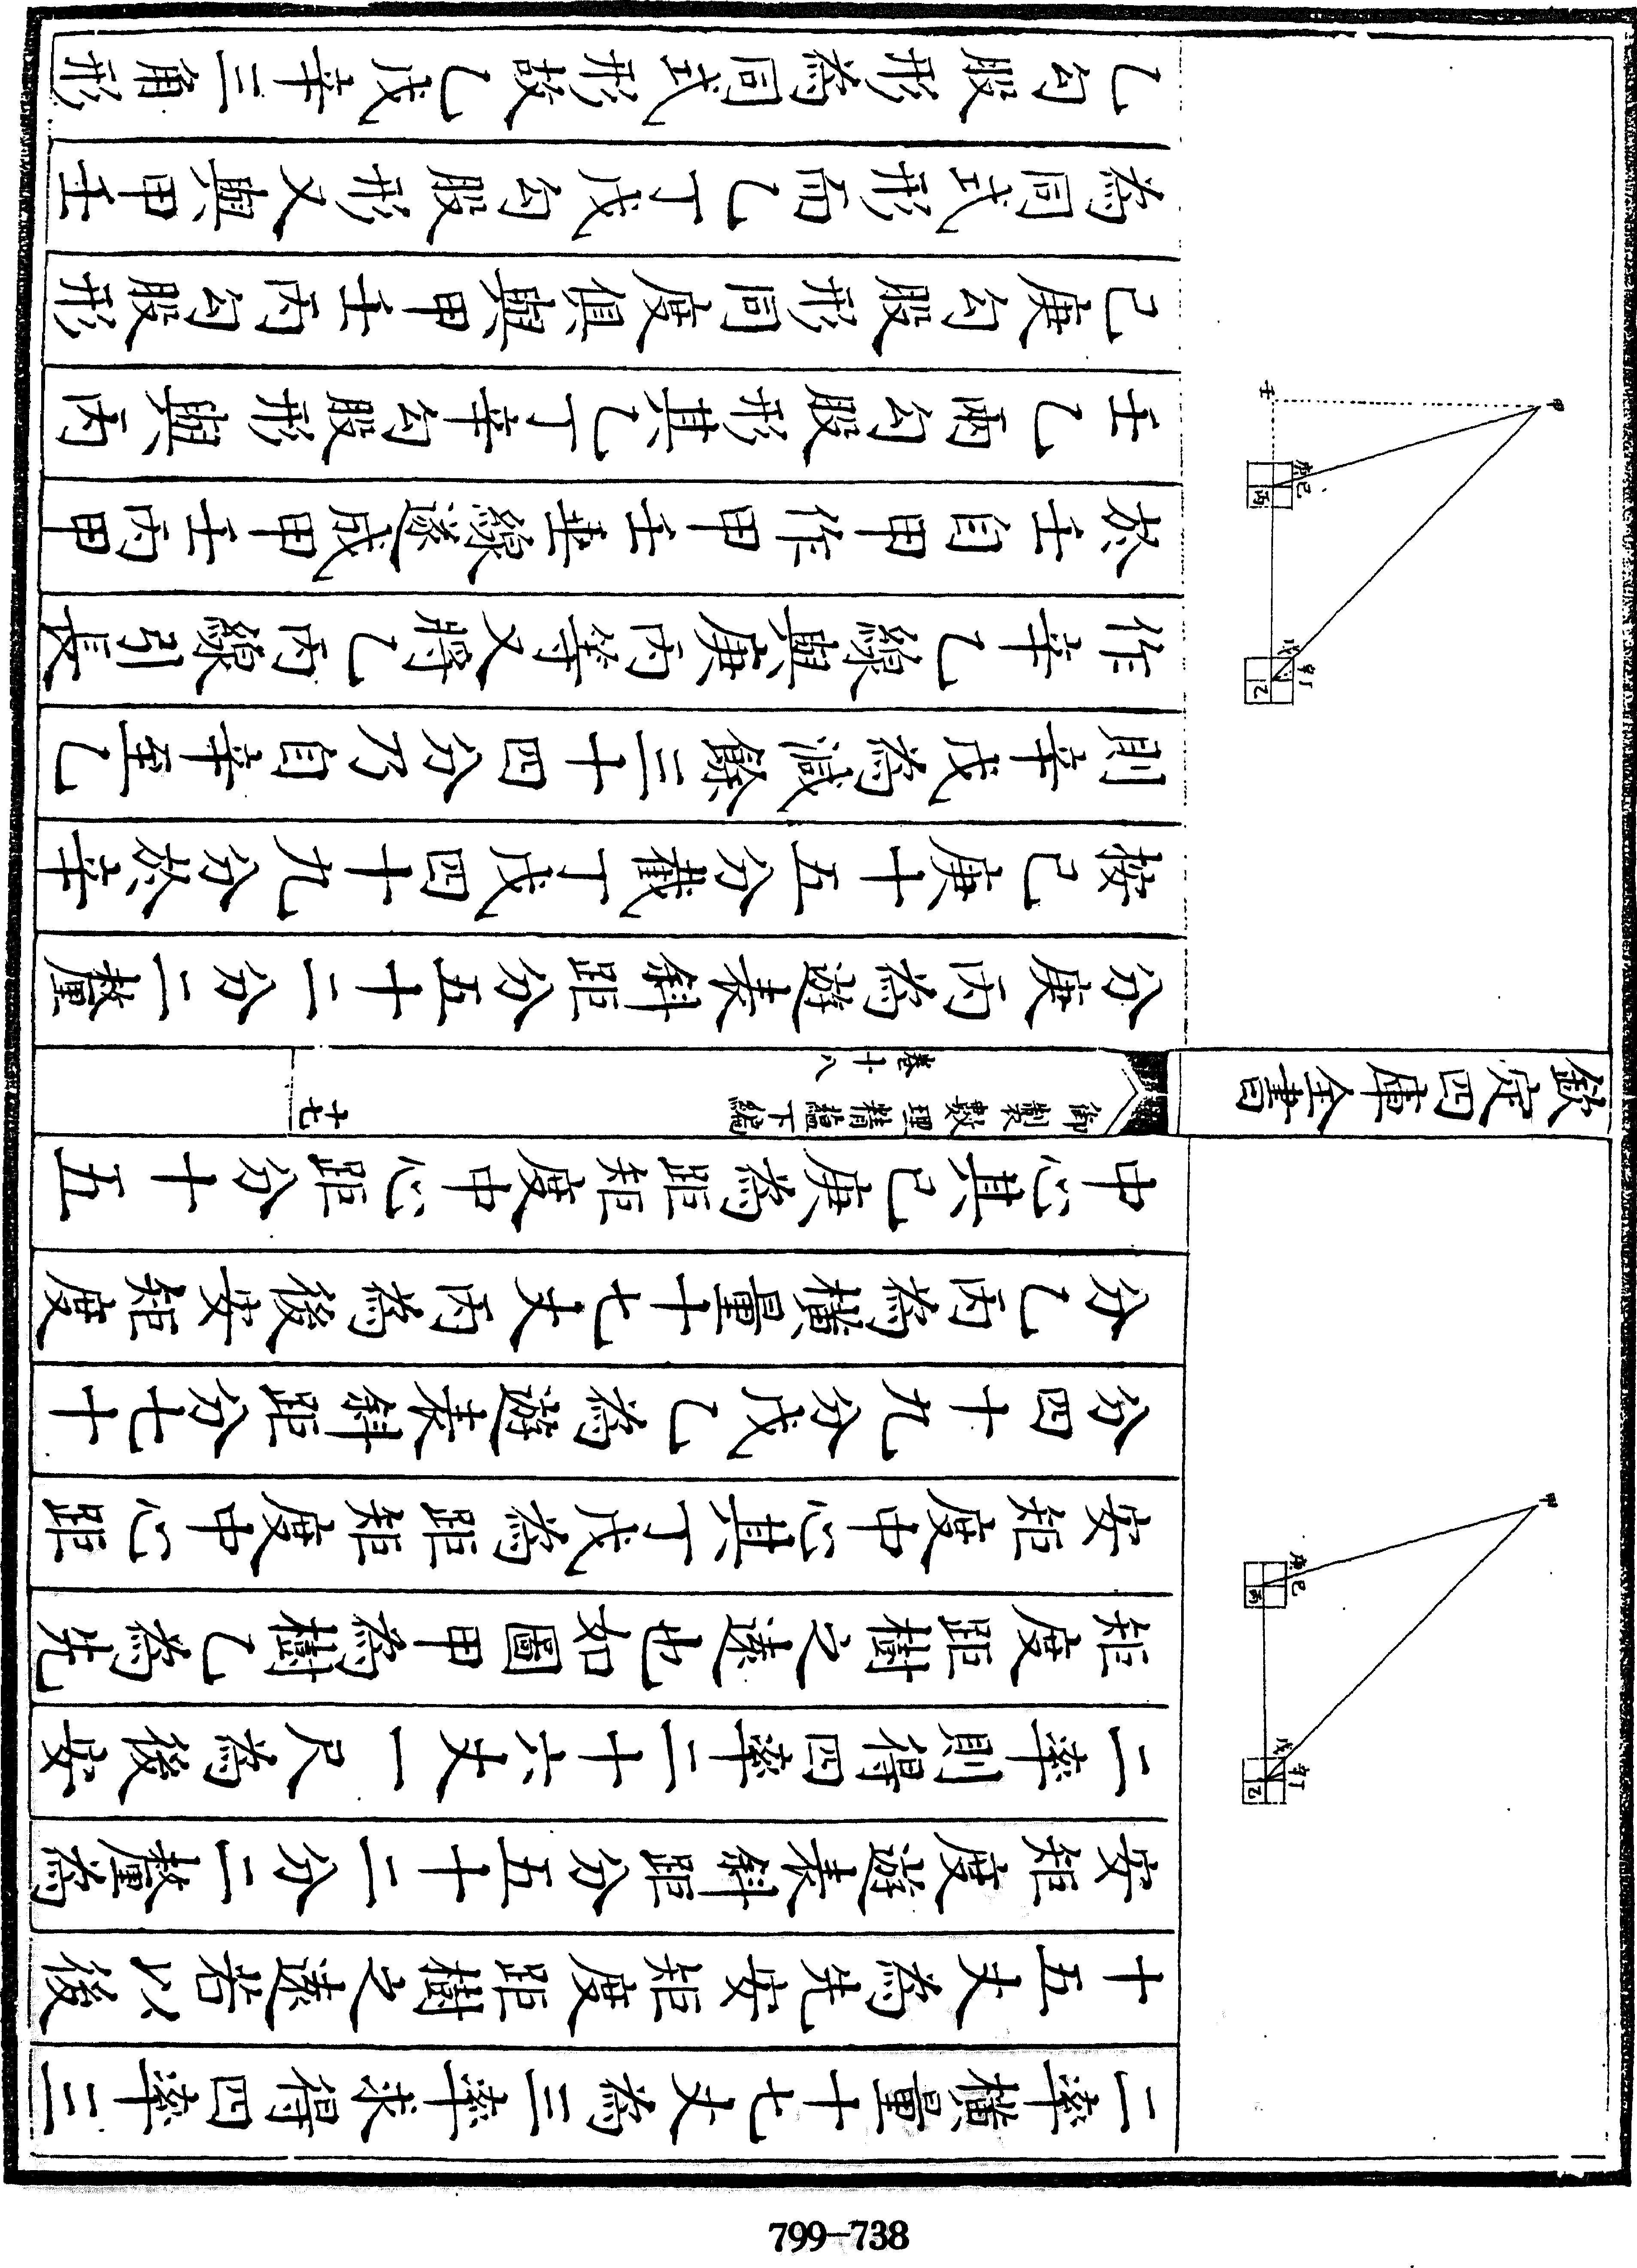 甲
庚己
丙
戊
辛丁
乙
二率橫量十七丈為三率求得四率三
十五丈為先安矩度距樹之遠若以後
安矩度遊表斜距分五十二分二釐為
二率則得四率二十六丈一尺為後安
矩度距樹之遠也如圖甲為樹乙為先
安矩度中心其丁戊為距矩度中心距
分四十九分戊乙為遊表斜距分七十
分乙丙為橫量十七丈丙為後安矩度
中心其己庚為距矩度中心距分十五
欽定四庫全書
御製數理精蘊下編
卷十八
甲
壬
庚己
丙
戊
辛丁
乙
分庚丙為遊表斜距分五十二分二釐
按己庚十五分截丁戊四十九分於辛
則辛戊為減餘三十四分乃自辛至乙
作辛乙線與庚丙等又將乙丙線引長
於壬自甲作甲壬垂線遂成甲壬丙甲
壬乙兩勾股形其乙丁辛勾股形與丙
己庚勾股形同度俱與甲壬丙勾股形
為同式形而乙丁戊勾股形又與甲壬
乙勾股形為同式形故乙戊辛三角形
799-738